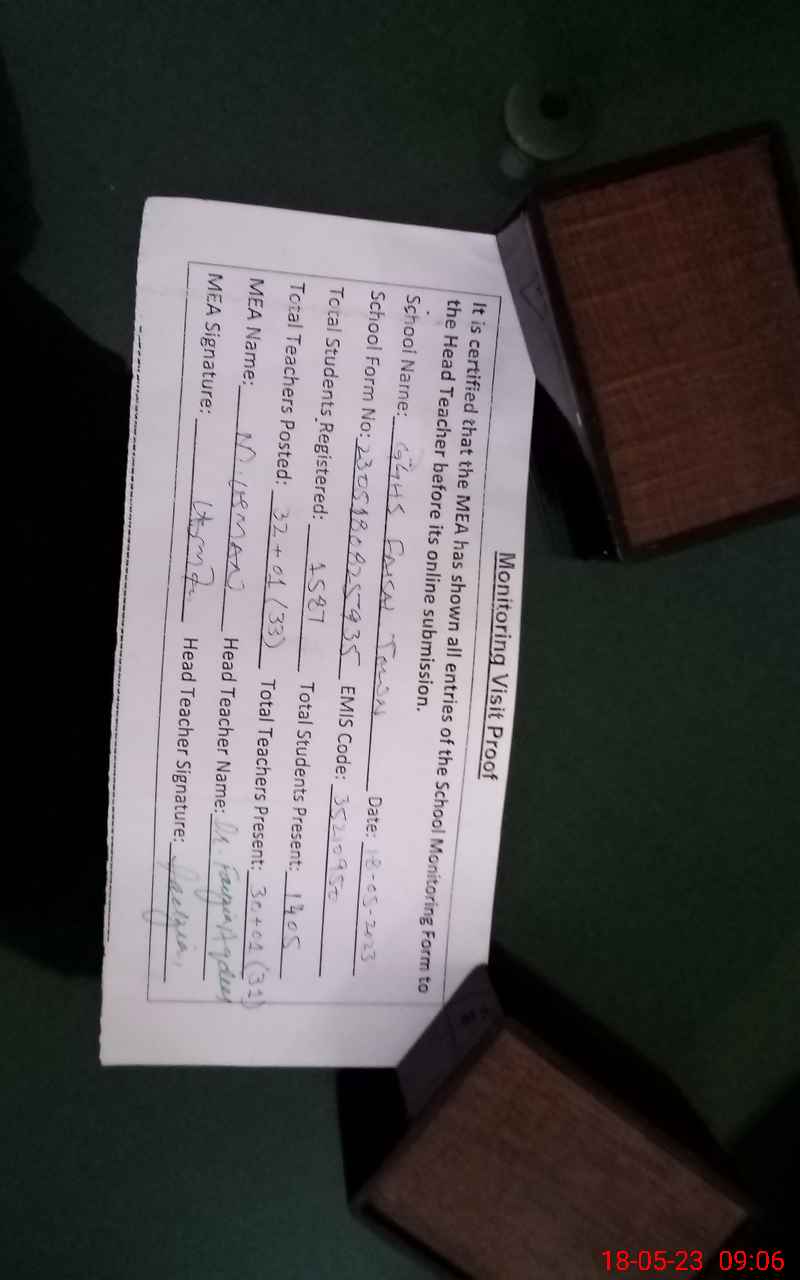 Monitoring Visit Proof
It is certified that the MEA has shown all entries of the School Monitoring Form to
the Head Teacher before its online submission.
School Name: GGHS Faisal Town Date: 18-05-2023
School Form No: EMIS Code: 35210950
Total Students Registered: 1587 Total Students Present: 1405
Total Teachers Posted: 32+01 (33) Total Teachers Present: 30+01 (31)
MEA Name: M. USMAN Head Teacher Name: Dr. Fouzia
MEA Signature: Usman Head Teacher Signature:
18-05-23 09:06